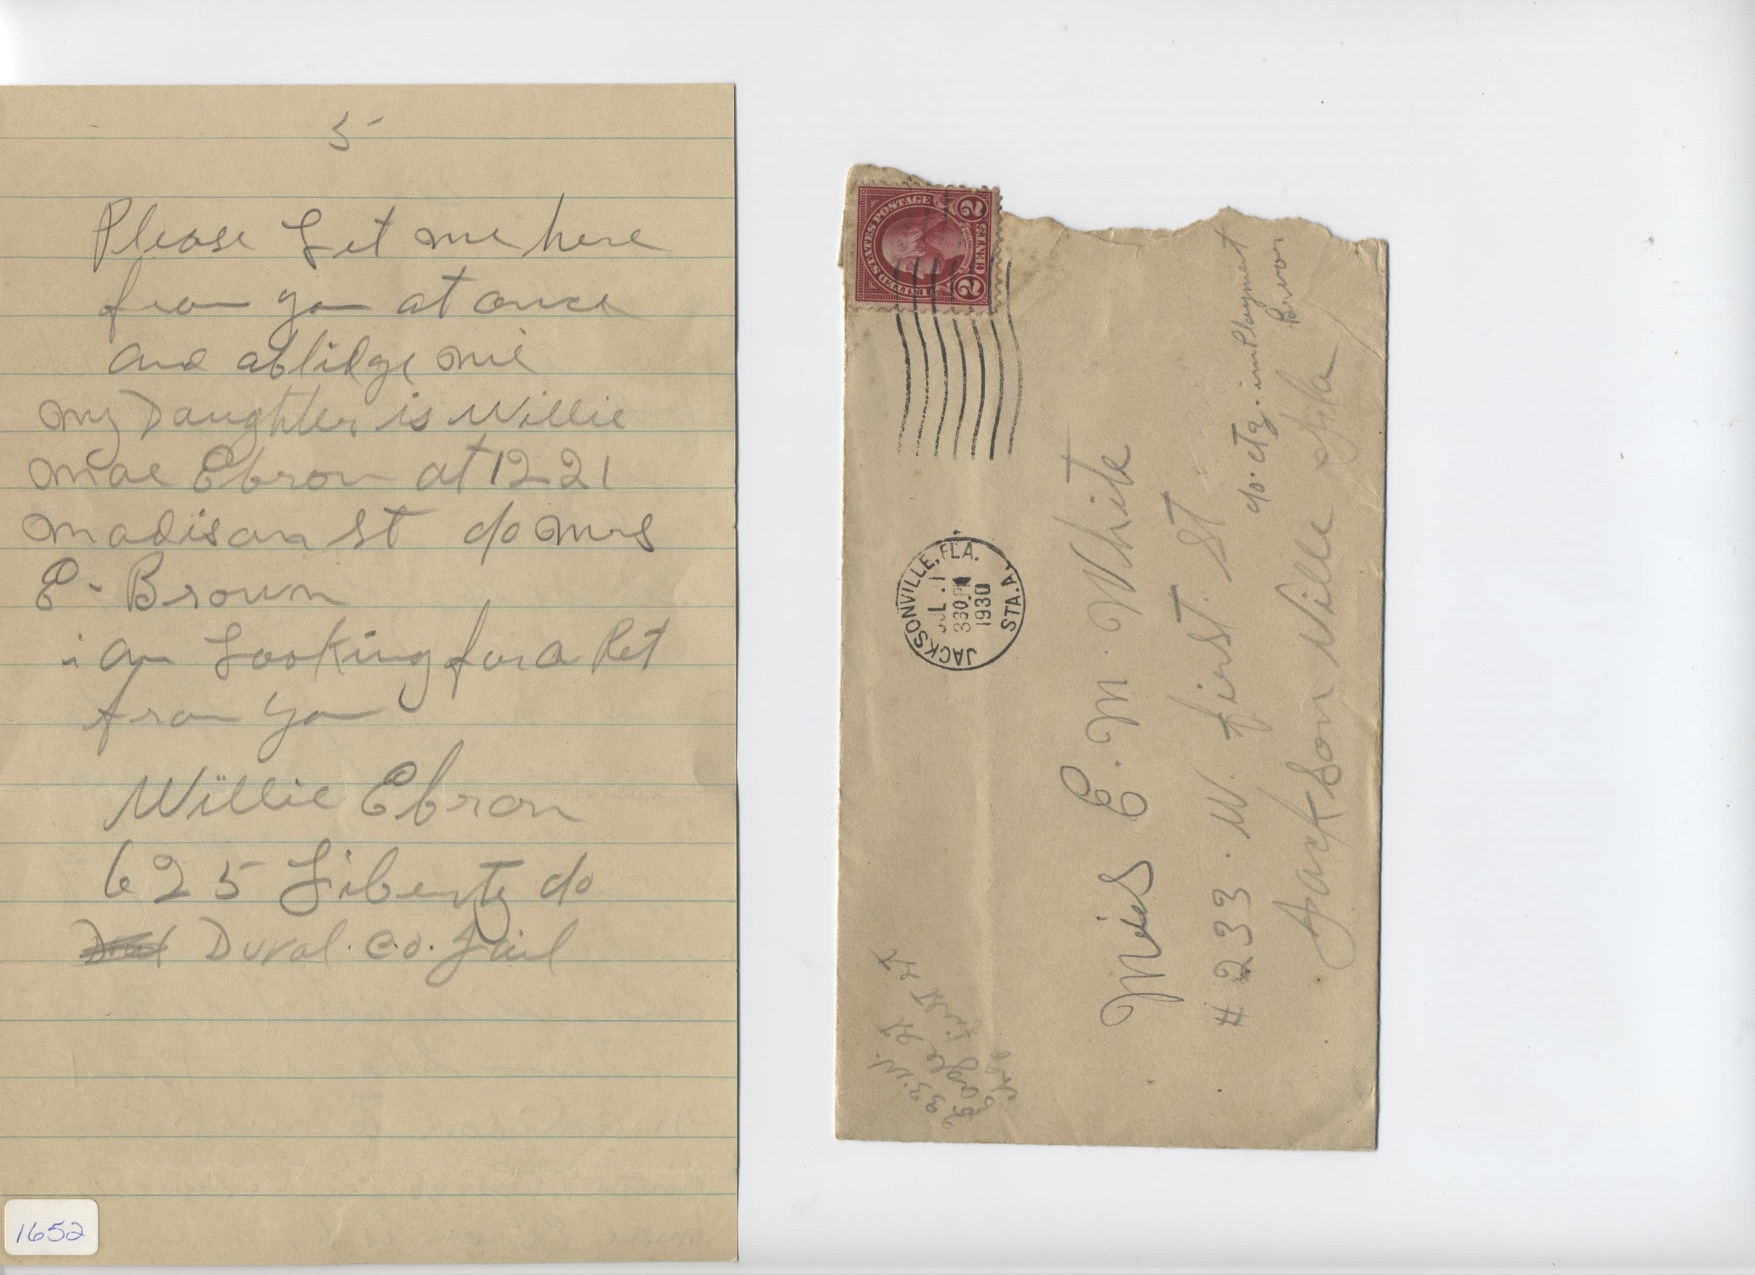 5-
Please Let me here
from you at once
and ablidge me
my Daughter is Willie
mae Ebron at 1221
madison st c/o mrs
E- Brown
i am Looking for a Ret
from you
Willie Ebron
625 Liberty c/o
Duval. co. Jail
1652
UNITED STATES POSTAGE
2 CENTS 2
JACKSONVILLE, FLA.
JUL 1
330 PM
1930
STA. A.
Miss E. M. White
# 233. W. first. St
c/o. cty. imPloyment
Jackson Ville Fla
233. W.
Eagle St
first st